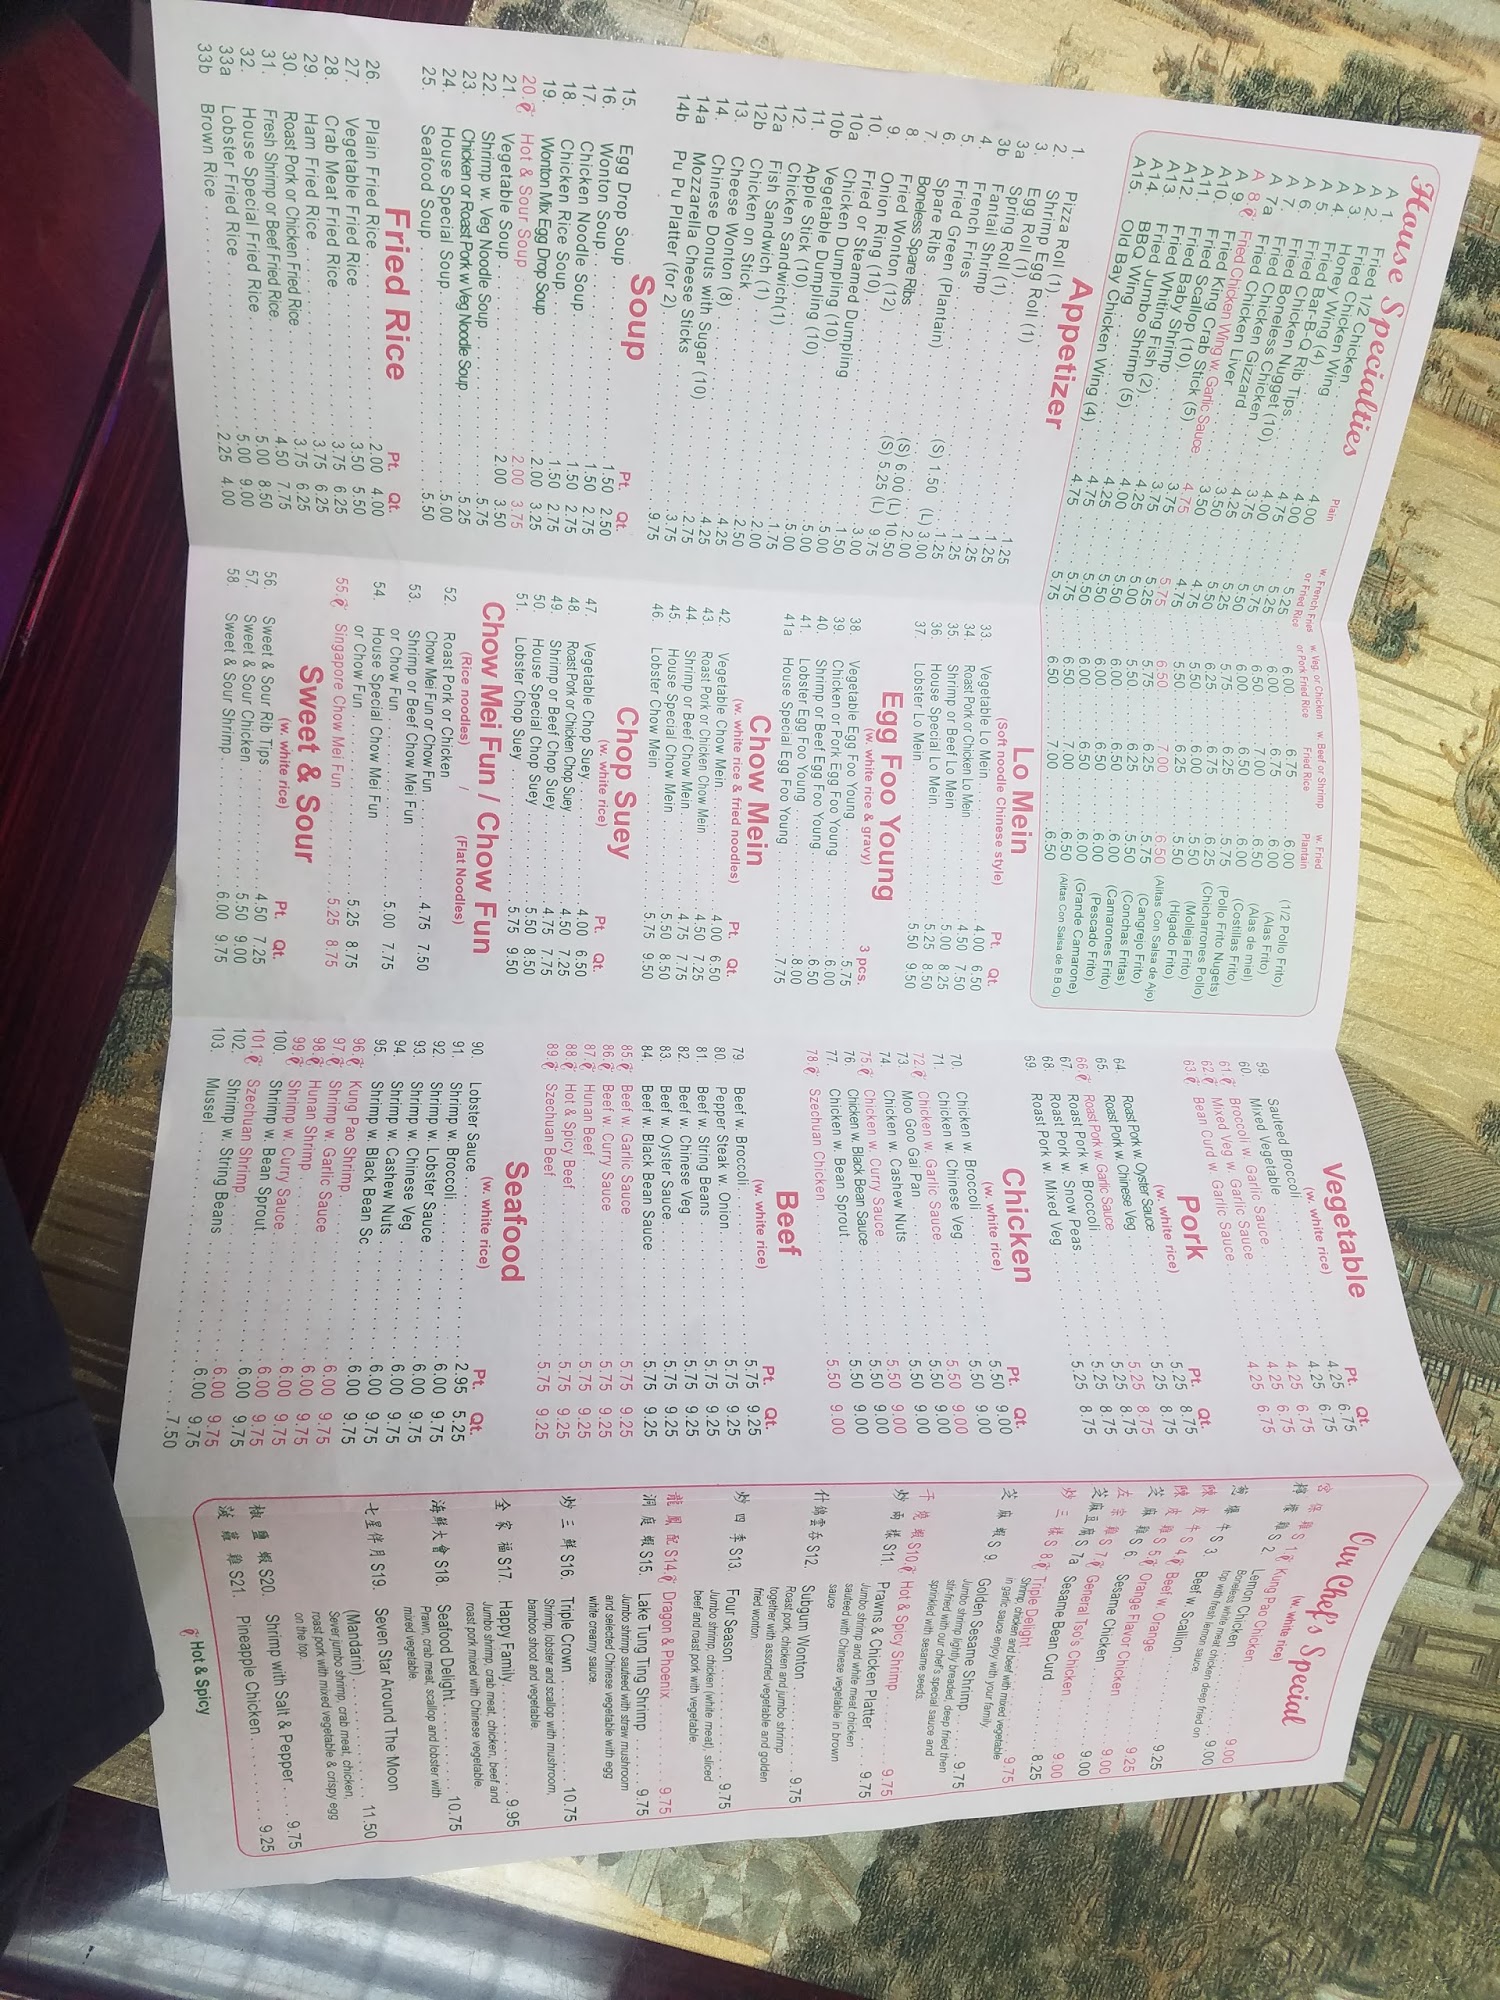 House Specialties
Plain w. French Fries or Fried Rice w. Veg. or Chicken or Pork Fried Rice w. Beef or Shrimp Fried Rice w. Fried Plantain
A 1. Fried 1/2 Chicken 4.00 5.25 6.00 6.75 6.00 (1/2 Pollo Frito)
A 2. Fried Chicken Wing 4.00 5.25 6.00 6.75 6.00 (Alas Frito)
A 3. Honey Wing (4) 4.75 5.75 6.50 7.00 6.50 (Alas de miel)
A 4. Fried Bar-B-Q Rib Tips 4.00 5.50 6.00 6.50 6.00 (Costillas Frito)
A 5. Fried Chicken Nugget (10) 3.75 5.50 5.75 6.25 5.75 (Pollo Frito Nugets)
A 6. Fried Boneless Chicken 4.25 5.50 6.25 6.75 6.25 (Chicharrones Pollo)
A 7. Fried Chicken Gizzard 3.50 4.75 5.50 6.00 5.50 (Molleja Frito)
A 7a. Fried Chicken Liver 3.50 4.75 5.50 6.25 5.50 (Higado Frito)
A 8. Fried Chicken Wing w. Garlic Sauce 4.75 5.75 6.50 7.00 6.50 (Alitas Con Salsa de Ajo)
A 9. Fried King Crab Stick (5) 3.75 5.25 5.75 6.25 5.75 (Cangrejo Frito)
A10. Fried Scallop (10) 3.75 5.00 5.50 6.25 5.50 (Conchas Fritas)
A11. Fried Baby Shrimp 4.25 5.50 6.00 6.50 6.00 (Camarones Frito)
A12. Fried Whiting Fish (2) 4.00 5.50 6.00 6.50 6.00 (Pescado Frito)
A13. Fried Jumbo Shrimp (5) 4.25 5.50 6.00 6.50 6.00 (Grande Camarone)
A14. BBQ Wing 4.75 5.75 6.50 7.00 6.50 (Alitas Con Salsa de B.B.Q)
A15. Old Bay Chicken Wing (4) 4.75 5.75 6.50 7.00 6.50
Appetizer
1. Pizza Roll (1) 1.25
2. Shrimp Egg Roll (1) 1.25
3. Egg Roll (1) 1.25
3a Spring Roll (1) 1.25
3b Fantail Shrimp 1.25
4. French Fries (S) 1.50 (L) 3.00
5. Fried Green (Plantain) 2.00
6. Spare Ribs (S) 6.00 (L) 10.50
7. Boneless Spare Ribs (S) 5.25 (L) 9.75
8. Fried Wonton (12) 3.00
9. Onion Ring (10) 1.50
10. Fried or Steamed Dumpling 5.00
10a Chicken Dumpling (10) 5.00
10b Vegetable Dumpling (10) 5.00
11. Apple Stick (10) 1.75
12. Chicken Sandwich(1) 2.00
12a Fish Sandwich (1) 2.50
12b Chicken on Stick 4.25
13. Cheese Wonton (8) 4.25
14. Chinese Donuts with Sugar (10) 2.75
14a Mozzarella Cheese Sticks 3.75
14b Pu Pu Platter (for 2) 9.75
Soup
Pt. Qt.
15. Egg Drop Soup 1.50 2.50
16. Wonton Soup 1.50 2.75
17. Chicken Noodle Soup 1.50 2.75
18. Chicken Rice Soup 1.50 2.75
19. Wonton Mix Egg Drop Soup 2.00 3.25
20. Hot & Sour Soup 2.00 3.75
21. Vegetable Soup 2.00 3.50
22. Shrimp w. Veg Noodle Soup 5.75
23. Chicken or Roast Pork w Veg Noodle Soup 5.25
24. House Special Soup 5.00
25. Seafood Soup 5.50
Fried Rice
Pt. Qt.
26. Plain Fried Rice 2.00 4.00
27. Vegetable Fried Rice 3.50 5.50
28. Crab Meat Fried Rice 3.75 6.25
29. Ham Fried Rice 3.75 6.25
30. Roast Pork or Chicken Fried Rice 3.75 6.25
31. Fresh Shrimp or Beef Fried Rice 4.50 7.75
32. House Special Fried Rice 5.00 8.50
33a Lobster Fried Rice 5.00 9.00
33b Brown Rice 2.25 4.00
Lo Mein
(Soft noodle Chinese style)
Pt. Qt.
33. Vegetable Lo Mein 4.00 6.50
34. Roast Pork or Chicken Lo Mein 4.50 7.50
35. Shrimp or Beef Lo Mein 5.00 8.25
36. House Special Lo Mein 5.25 8.50
37. Lobster Lo Mein 5.50 9.50
Egg Foo Young
(w. white rice & gravy)
3 pcs.
38. Vegetable Egg Foo Young 5.75
39. Chicken or Pork Egg Foo Young 6.00
40. Shrimp or Beef Egg Foo Young 6.50
41. Lobster Egg Foo Young 8.00
41a House Special Egg Foo Young 7.75
Chow Mein
(w. white rice & fried noodles)
Pt. Qt.
42. Vegetable Chow Mein 4.00 6.50
43. Roast Pork or Chicken Chow Mein 4.50 7.25
44. Shrimp or Beef Chow Mein 4.75 7.75
45. House Special Chow Mein 5.50 8.50
46. Lobster Chow Mein 5.75 9.50
Chop Suey
(w. white rice)
Pt. Qt.
47. Vegetable Chop Suey 4.00 6.50
48. Roast Pork or Chicken Chop Suey 4.50 7.25
49. Shrimp or Beef Chop Suey 4.75 7.75
50. House Special Chop Suey 5.50 8.50
51. Lobster Chop Suey 5.75 9.50
Chow Mei Fun / Chow Fun
(Rice noodles) / (Flat Noodles)
52. Roast Pork or Chicken
Chow Mei Fun or Chow Fun 4.75 7.50
53. Shrimp or Beef Chow Mei Fun
or Chow Fun 5.00 7.75
54. House Special Chow Mei Fun
or Chow Fun 5.25 8.75
55. Singapore Chow Mei Fun 5.25 8.75
Sweet & Sour
(w. white rice)
Pt. Qt.
56. Sweet & Sour Rib Tips 4.50 7.25
57. Sweet & Sour Chicken 5.50 9.00
58. Sweet & Sour Shrimp 6.00 9.75
Vegetable
(w. white rice)
Pt. Qt.
59. Sauteed Broccoli 4.25 6.75
60. Mixed Vegetable 4.25 6.75
61. Broccoli w. Garlic Sauce 4.25 6.75
62. Mixed Veg w. Garlic Sauce 4.25 6.75
63. Bean Curd w. Garlic Sauce 4.25 6.75
Pork
(w. white rice)
Pt. Qt.
64. Roast Pork w. Oyster Sauce 5.25 8.75
65. Roast Pork w. Chinese Veg 5.25 8.75
66. Roast Pork w. Garlic Sauce 5.25 8.75
67. Roast Pork w. Broccoli 5.25 8.75
68. Roast Pork w. Snow Peas 5.25 8.75
69. Roast Pork w. Mixed Veg 5.25 8.75
Chicken
(w. white rice)
Pt. Qt.
70. Chicken w. Broccoli 5.50 9.00
71. Chicken w. Chinese Veg 5.50 9.00
72. Chicken w. Garlic Sauce 5.50 9.00
73. Moo Goo Gai Pan 5.50 9.00
74. Chicken w. Cashew Nuts 5.50 9.00
75. Chicken w. Curry Sauce 5.50 9.00
76. Chicken w. Black Bean Sauce 5.50 9.00
77. Chicken w. Bean Sprout 5.50 9.00
78. Szechuan Chicken 5.50 9.00
Beef
(w. white rice)
Pt. Qt.
79. Beef w. Broccoli 5.75 9.25
80. Pepper Steak w. Onion 5.75 9.25
81. Beef w. String Beans 5.75 9.25
82. Beef w. Chinese Veg 5.75 9.25
83. Beef w. Oyster Sauce 5.75 9.25
84. Beef w. Black Bean Sauce 5.75 9.25
85. Beef w. Garlic Sauce 5.75 9.25
86. Beef w. Curry Sauce 5.75 9.25
87. Hunan Beef 5.75 9.25
88. Hot & Spicy Beef 5.75 9.25
89. Szechuan Beef 5.75 9.25
Seafood
(w. white rice)
Pt. Qt.
90. Lobster Sauce 2.95 5.25
91. Shrimp w. Broccoli 6.00 9.75
92. Shrimp w. Lobster Sauce 6.00 9.75
93. Shrimp w. Chinese Veg 6.00 9.75
94. Shrimp w. Cashew Nuts 6.00 9.75
95. Shrimp w. Black Bean Sc 6.00 9.75
96. Kung Pao Shrimp 6.00 9.75
97. Shrimp w. Garlic Sauce 6.00 9.75
98. Hunan Shrimp 6.00 9.75
99. Shrimp w. Curry Sauce 6.00 9.75
100. Shrimp w. Bean Sprout 6.00 9.75
101. Szechuan Shrimp 6.00 9.75
102. Shrimp w. String Beans 6.00 9.75
103. Mussel 7.50
Our Chef's Special
(w. white rice)
宮保雞 S 1. Kung Pao Chicken 9.00
檸檬雞 S 2. Lemon Chicken 9.00
Boneless white meat chicken deep fried on
top with fresh lemon sauce.
蔥爆牛 S 3. Beef w. Scallion 9.25
陳皮牛 S 4. Beef w. Orange 9.25
陳皮雞 S 5. Orange Flavor Chicken 9.00
芝麻雞 S 6. Sesame Chicken 9.00
左宗雞 S 7. General Tso's Chicken 9.00
芝麻豆腐 S 7a Sesame Bean Curd 8.25
炒三樣 S 8. Triple Delight 9.75
Shrimp, chicken and beef with mixed vegetable
in garlic sauce enjoy with your family
芝麻蝦 S 9. Golden Sesame Shrimp 9.75
Jumbo shrimp lightly breaded, deep fried then
stir-fried with our chef's special sauce and
sprinkled with sesame seeds.
干燒蝦 S10. Hot & Spicy Shrimp 9.75
炒兩樣 S11. Prawns & Chicken Platter 9.75
Jumbo shrimp and white meat chicken
sauteed with Chinese vegetable in brown
sauce
什錦雲吞 S12. Subgum Wonton 9.75
Roast pork, chicken and jumbo shrimp
together with assorted vegetable and golden
fried wonton.
炒四季 S13. Four Season 9.75
Jumbo shrimp, chicken (white meat), sliced
beef and roast pork with vegetable.
龍鳳配 S14. Dragon & Phoenix 9.75
洞庭蝦 S15. Lake Tung Ting Shrimp 9.75
Jumbo shrimp sauteed with straw mushroom
and selected Chinese vegetable with egg
white creamy sauce.
炒三鮮 S16. Triple Crown 10.75
Shrimp, lobster and scallop with mushroom,
bamboo shoot and vegetable.
全家福 S17. Happy Family 9.95
Jumbo shrimp, crab meat, chicken, beef and
roast pork mixed with Chinese vegetable.
海鮮大會 S18. Seafood Delight 10.75
Prawn, crab meat, scallop and lobster with
mixed vegetable.
七星伴月 S19. Seven Star Around The Moon
(Mandarin) 11.50
Sever jumbo shrimp, crab meat, chicken,
roast pork with mixed vegetable & crispy egg
on the top.
椒鹽蝦 S20. Shrimp with Salt & Pepper 9.75
菠蘿雞 S21. Pineapple Chicken 9.25
Hot & Spicy